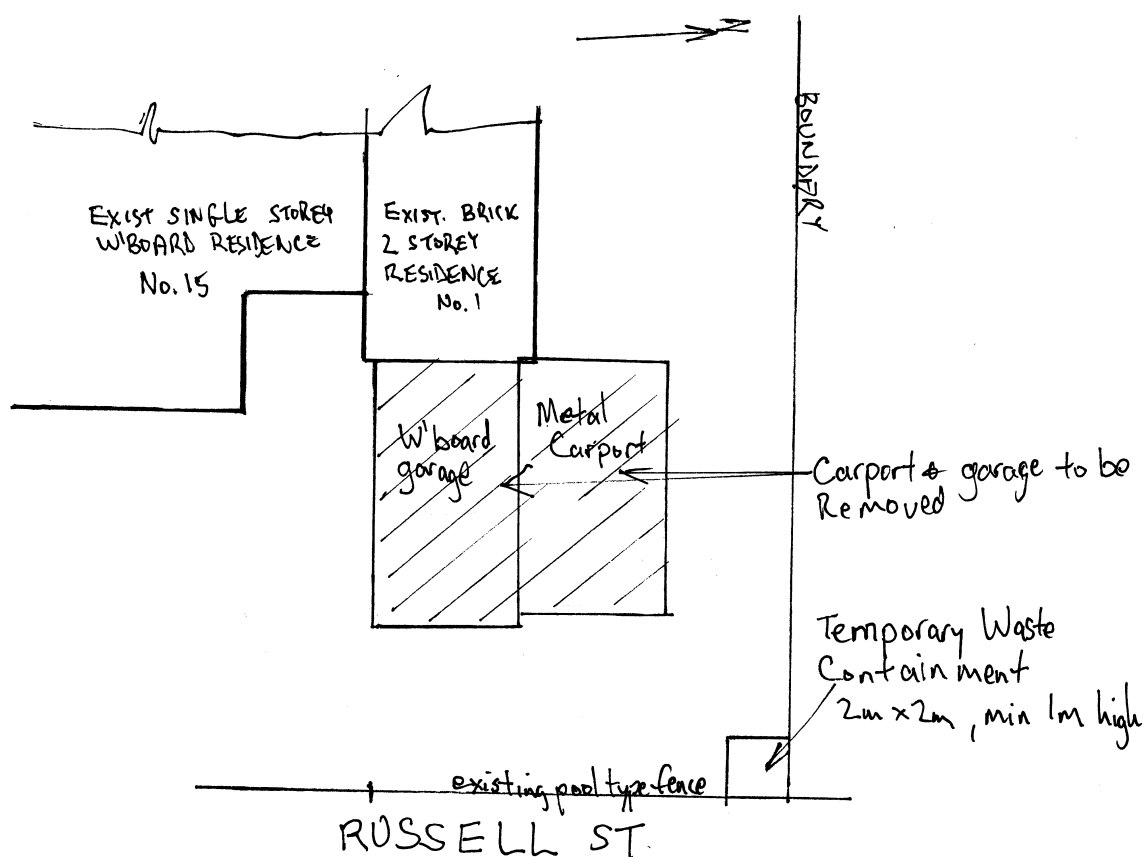 Z
BOUNDARY
EXIST SINGLE STOREY
W'BOARD RESIDENCE
No. 15
EXIST. BRICK
2 STOREY
RESIDENCE
No. 1
W'board
garage
Metal
Carport
Carport & garage to be
Removed
Temporary Waste
Containment
2m x 2m, min 1m high
existing pool type fence
RUSSELL ST.